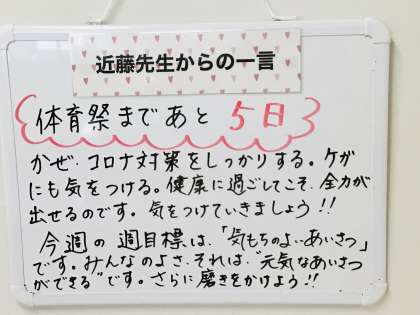 近藤先生からの一言
体育祭まであと 5日
かぜ、コロナ対策をしっかりする。ケガ
にも気をつける。健康に過ごしてこそ、全力が
出せるのです。気をつけていきましょう!!
今週の週目標は、「気もちのよいあいさつ」
です。みんなのよさ、それは、"元気なあいさつ
ができる"です。さらに磨きをかけよう!!